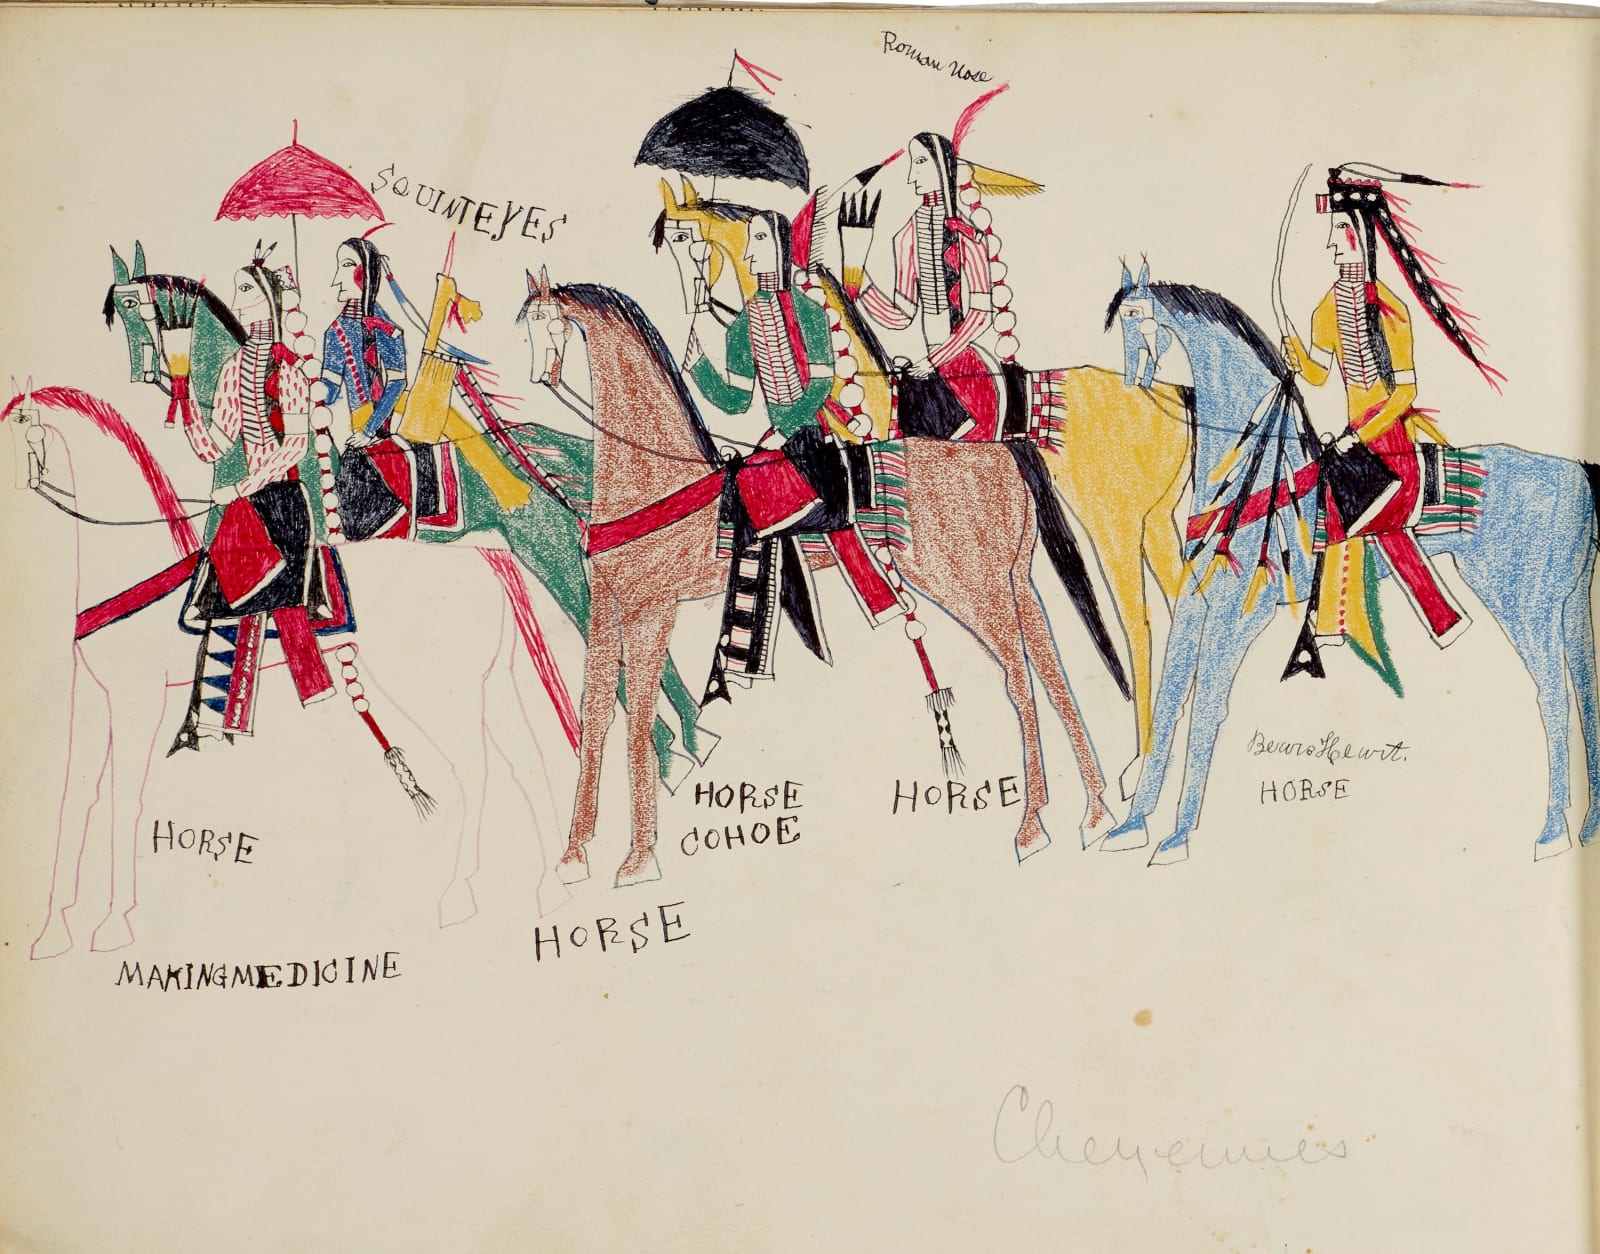 Roman Nose
SQUINTEYES
Bears Heart.
HORSE
HORSE
HORSE
COHOE
HORSE
HORSE
MAKINGMEDICINE
Cheyennes